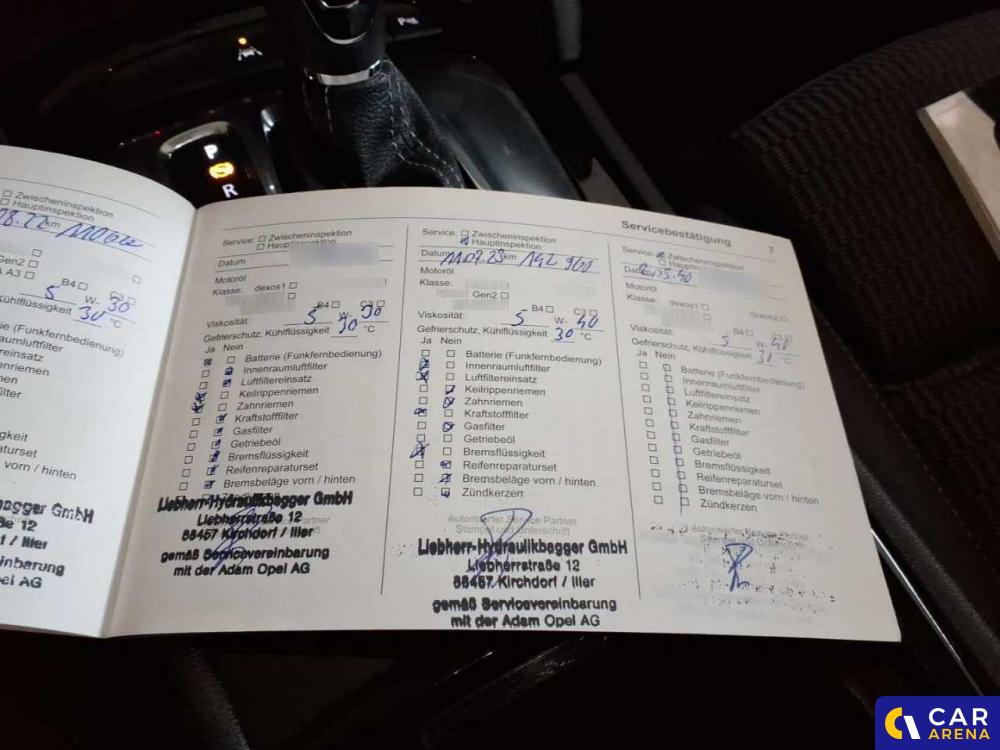 P
R
Zwischeninspektion
Hauptinspektion
km
Gen2
A3
B4 C3
5 W- 30
Kühlflüssigkeit 30 °C
(Funkfernbedienung)
vorn / hinten
Service: Zwischeninspektion
Hauptinspektion
Datum
Motoröl
Klasse: dexos1
B4 C3
Viskosität: 5 W- 30
Gefrierschutz, Kühlflüssigkeit 30 °C
Ja Nein
Batterie (Funkfernbedienung)
Innenraumluftfilter
Luftfiltereinsatz
Keilrippenriemen
Zahnriemen
Kraftstofffilter
Gasfilter
Getriebeöl
Bremsflüssigkeit
Reifenreparaturset
Bremsbeläge vorn / hinten
Liebherr-Hydraulikbagger GmbH
Liebherrstraße 12
88457 Kirchdorf / Iller
gemäß Servicevereinbarung
mit der Adam Opel AG
Service: Zwischeninspektion
Hauptinspektion
Datum km
Motoröl
Klasse:
Gen2
B4 C3
Viskosität: 5 W- 40
Gefrierschutz, Kühlflüssigkeit 30 °C
Ja Nein
Batterie (Funkfernbedienung)
Innenraumluftfilter
Luftfiltereinsatz
Keilrippenriemen
Zahnriemen
Kraftstofffilter
Gasfilter
Getriebeöl
Bremsflüssigkeit
Reifenreparaturset
Bremsbeläge vorn / hinten
Zündkerzen
Autorisierter Service Partner
Stempel und Unterschrift
Liebherr-Hydraulikbagger GmbH
Liebherrstraße 12
88457 Kirchdorf / Iller
gemäß Servicevereinbarung
mit der Adam Opel AG
Servicebestätigung 7
Service: Zwischeninspektion
Motoröl
Klasse: dexos1
dexos2
B4 C3
Viskosität: 5 W- 40
Gefrierschutz, Kühlflüssigkeit °C
Ja Nein
Batterie (Funkfernbedienung)
Innenraumluftfilter
Luftfiltereinsatz
Keilrippenriemen
Zahnriemen
Kraftstofffilter
Gasfilter
Getriebeöl
Bremsflüssigkeit
Reifenreparaturset
Bremsbeläge vorn / hinten
Zündkerzen
Autorisierter Service Partner
CAR
ARENA